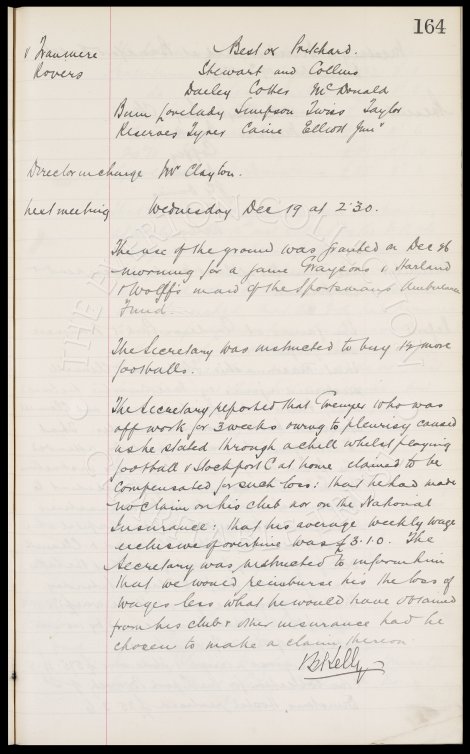 164
v Tranmere Best & Pritchard.
Rovers Stewart and Collins
Dailey Cottes McDonald
Burn Lovelady Simpson Twiss Taylor
Reserves Tyres Caine Elliott Junr
Director in charge Mr Clayton.
next meeting Wednesday Dec 19 at 2.30.
The use of the ground was granted on Dec 26
morning for a game Graysons v Harland
& Wolff's in aid of the Sportsmans Ambulance
Fund.
The Secretary was instructed to buy 12 more
footballs.
The Secretary reported that Grenyer who was
off work for 3 weeks owing to pleurisy caused
as he stated through a chill whilst playing
football v Stockport C at home claimed to be
compensated for such loss: that he had made
no claim on his club nor on the National
Insurance: that his average weekly wage
exclusive of overtime was £3.1.0. The
Secretary was instructed to inform him
that we would reimburse his the loss of
wages less what he would have obtained
from his club & other insurance had he
chosen to make a claim thereon.
Kelly